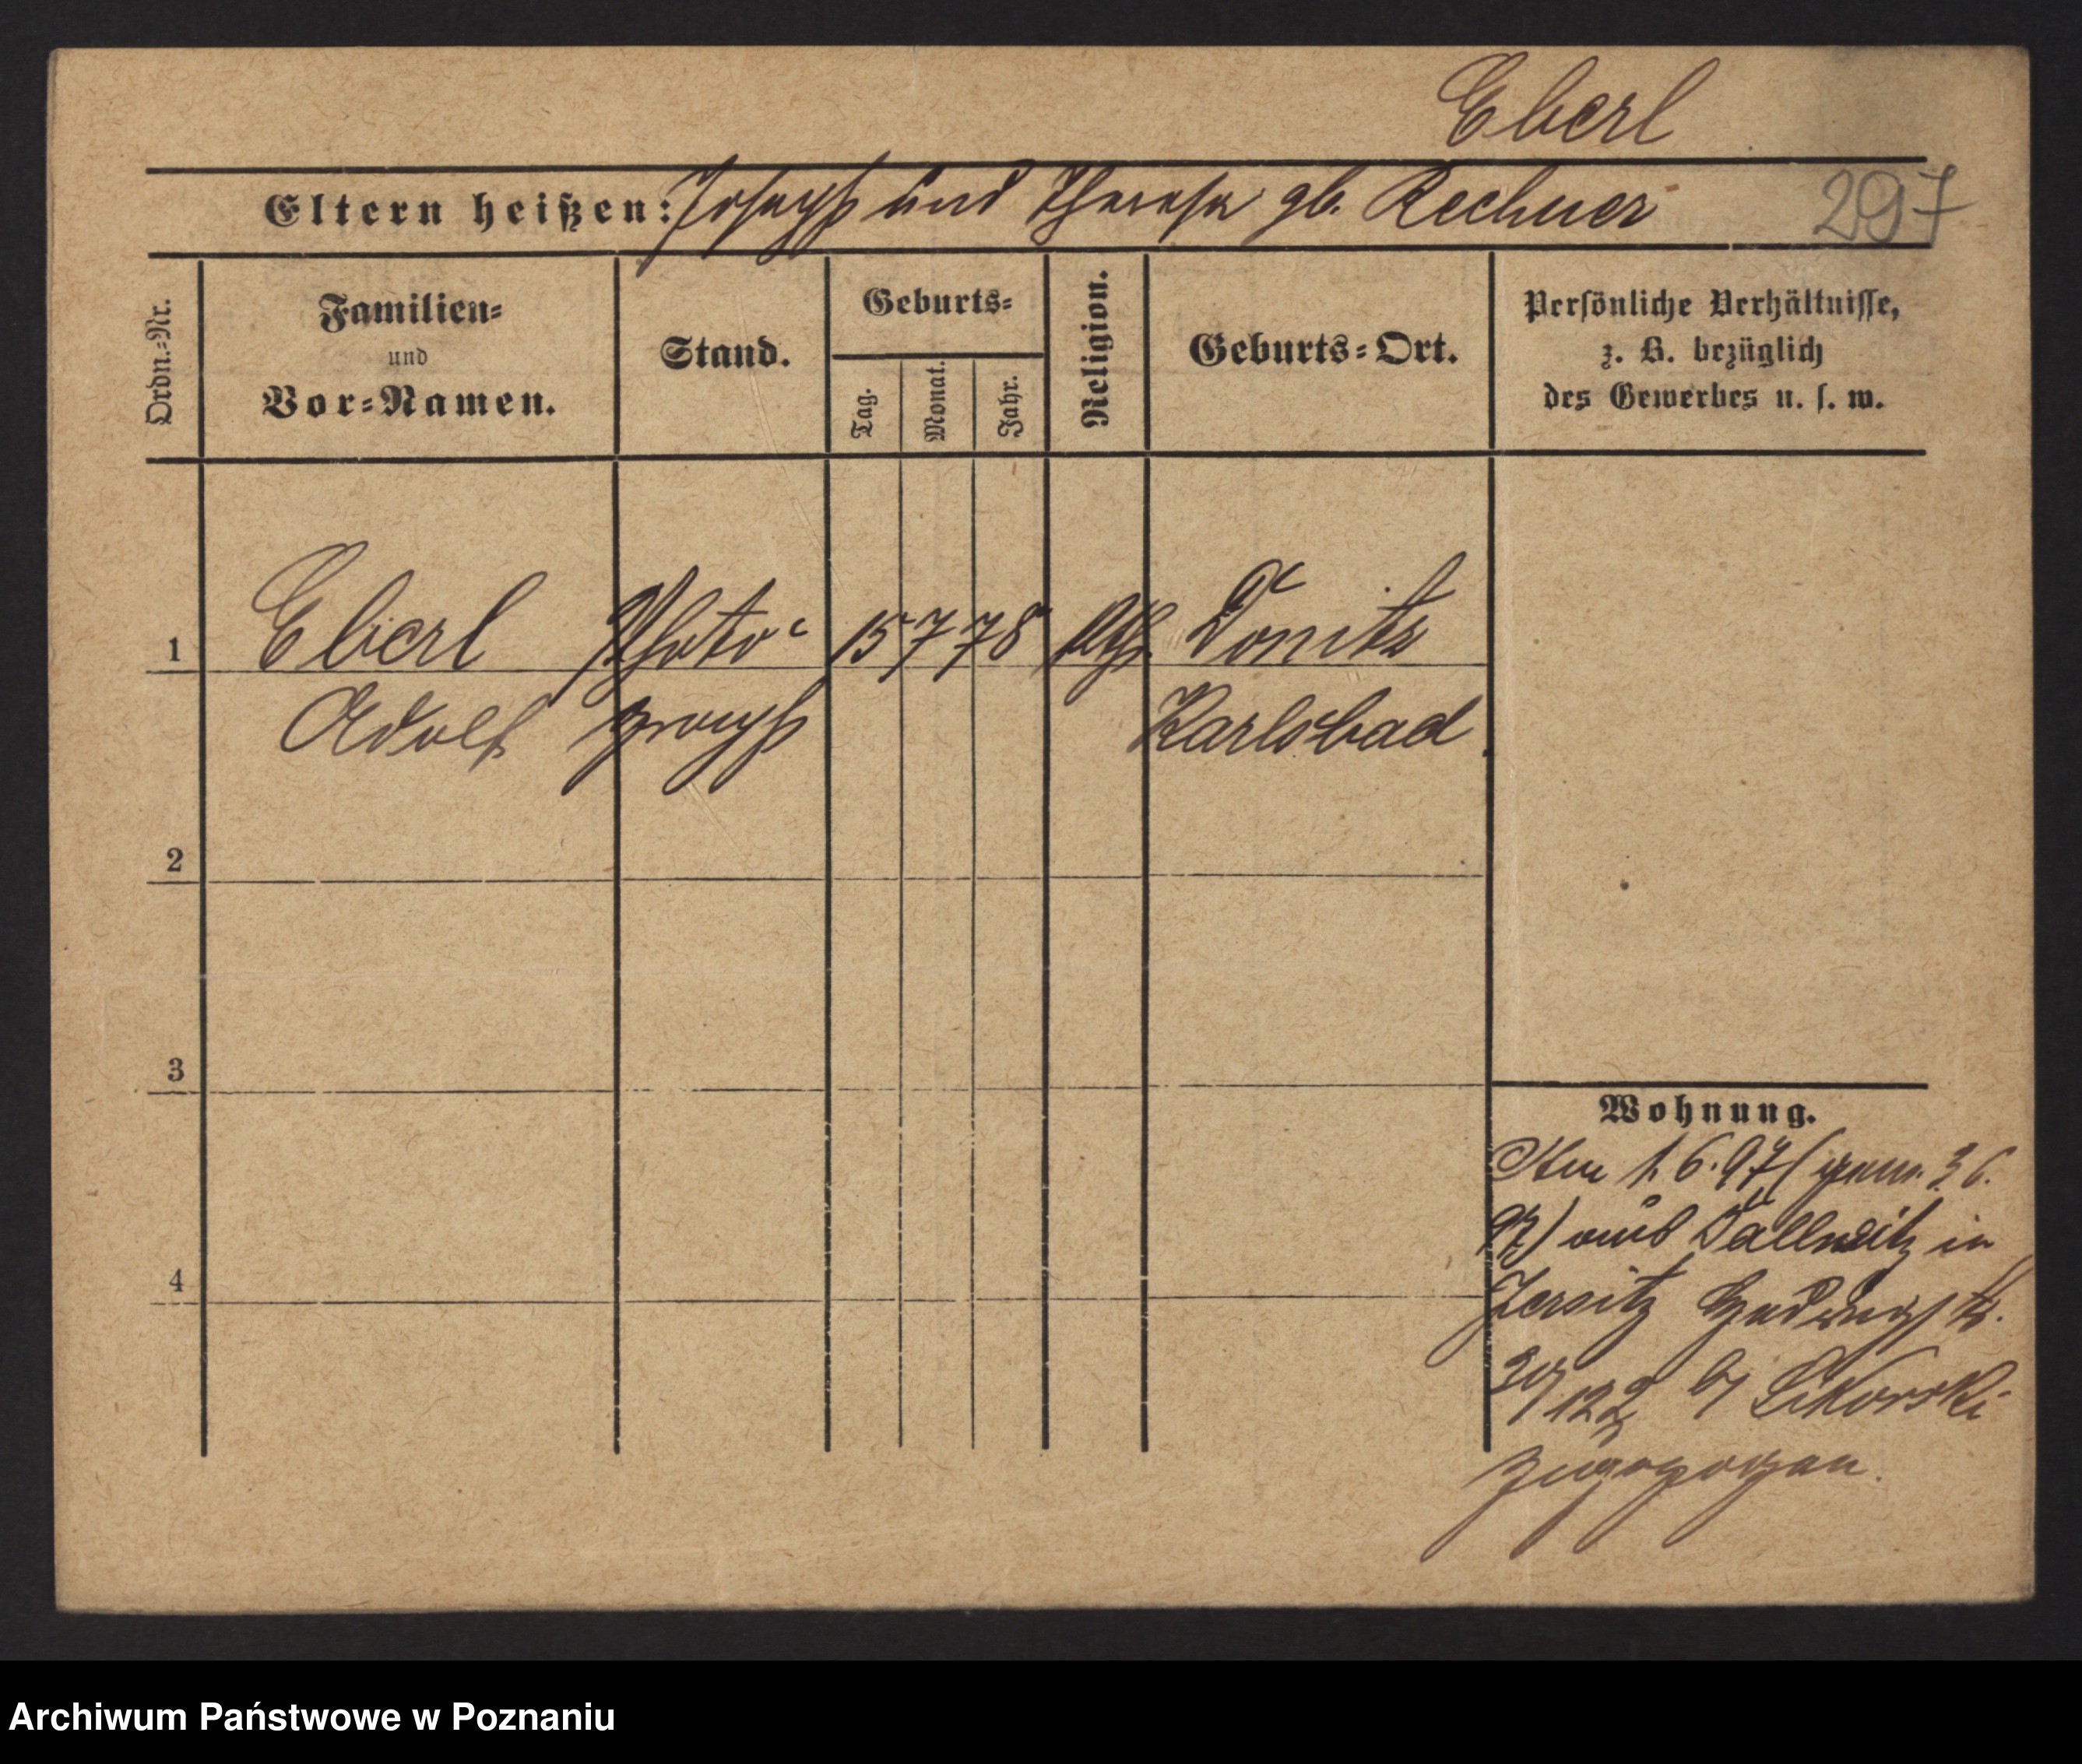 Eberl
Eltern heißen: Joseph und Therese gb. Rechner
297
Ordn.-Nr.
Familien-
und
Vor-Namen.
Stand.
Geburts-
Tag.
Monat.
Jahr.
Religion.
Geburts-Ort.
Persönliche Verhältnisse,
z. B. bezüglich
des Gewerbes u. s. w.
1 Eberl Photo- 15 7 78 kth. Donitz
Adolf graph Karlsbad
2
3
4
Wohnung.
Am 1.6.97 (gem. 3 6.
97) aus in
Jersitz Hedwigstr.
b/ Sikorski
zugezogen.
Archiwum Państwowe w Poznaniu